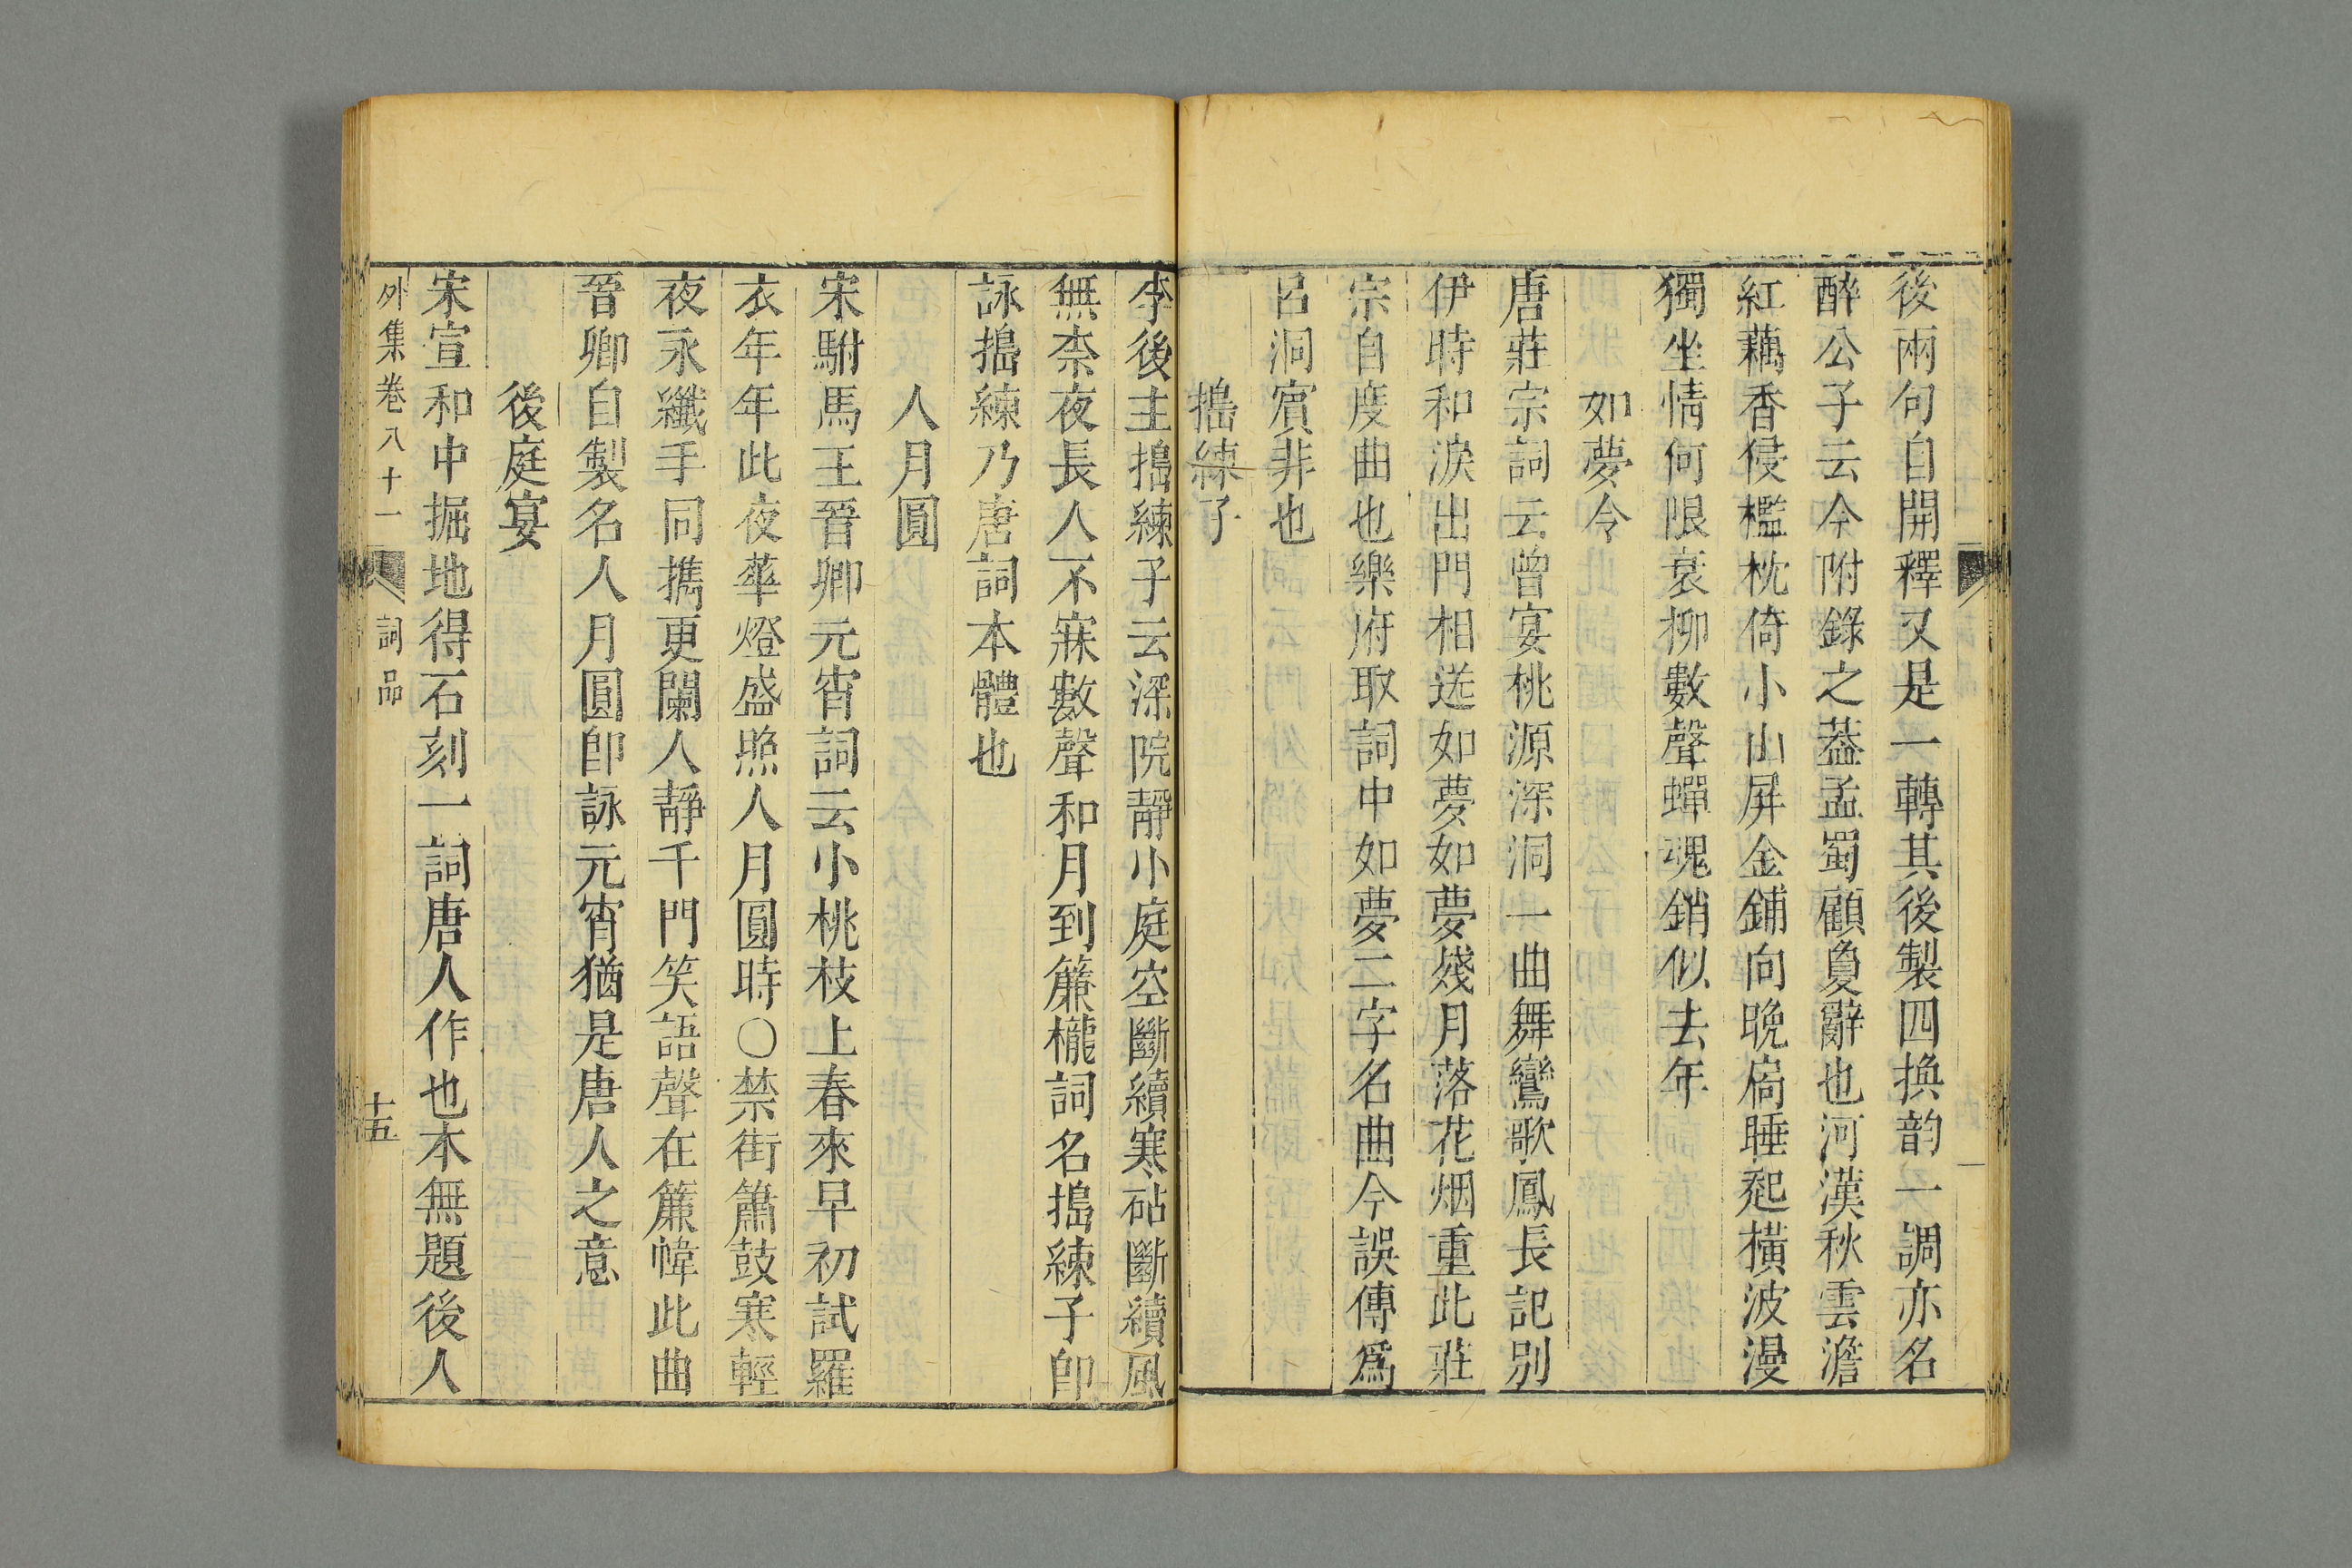 後兩句自開釋又是一轉其後製四換韵一調亦名
醉公子云今附錄之葢孟蜀顧敻辭也河漢秋雲澹
紅藕香侵檻枕倚小山屏金鋪向晚扃睡起橫波漫
獨坐情何限衰柳數聲蟬魂銷似去年
如夢令
唐莊宗詞云曾宴桃源深洞一曲舞鸞歌鳳長記別
伊時和淚出門相送如夢如夢殘月落花烟重此莊
宗自度曲也樂府取詞中如夢二字名曲今誤傳爲
呂洞賓非也
搗練子
李後主搗練子云深院靜小庭空斷續寒砧斷續風
無柰夜長人不寐數聲和月到簾櫳詞名搗練子卽
詠搗練乃唐詞本體也
人月圓
宋駙馬王晉卿元宵詞云小桃枝上春來早初試羅
衣年年此夜華燈盛照人月圓時○禁街簫鼓寒輕
夜永纖手同携更闌人靜千門笑語聲在簾幃此曲
晉卿自製名人月圓卽詠元宵猶是唐人之意
後庭宴
宋宣和中掘地得石刻一詞唐人作也本無題後人
外集卷八十一 詞品 十五